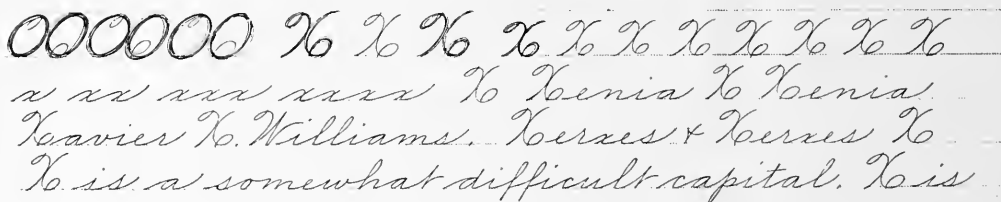 OOOOOO X X X X X X X X X X X
x xx xxx xxxx X Xenia X Xenia
Xavier X. Williams. Xerxes & Xerxes X
X is a somewhat difficult capital. X is